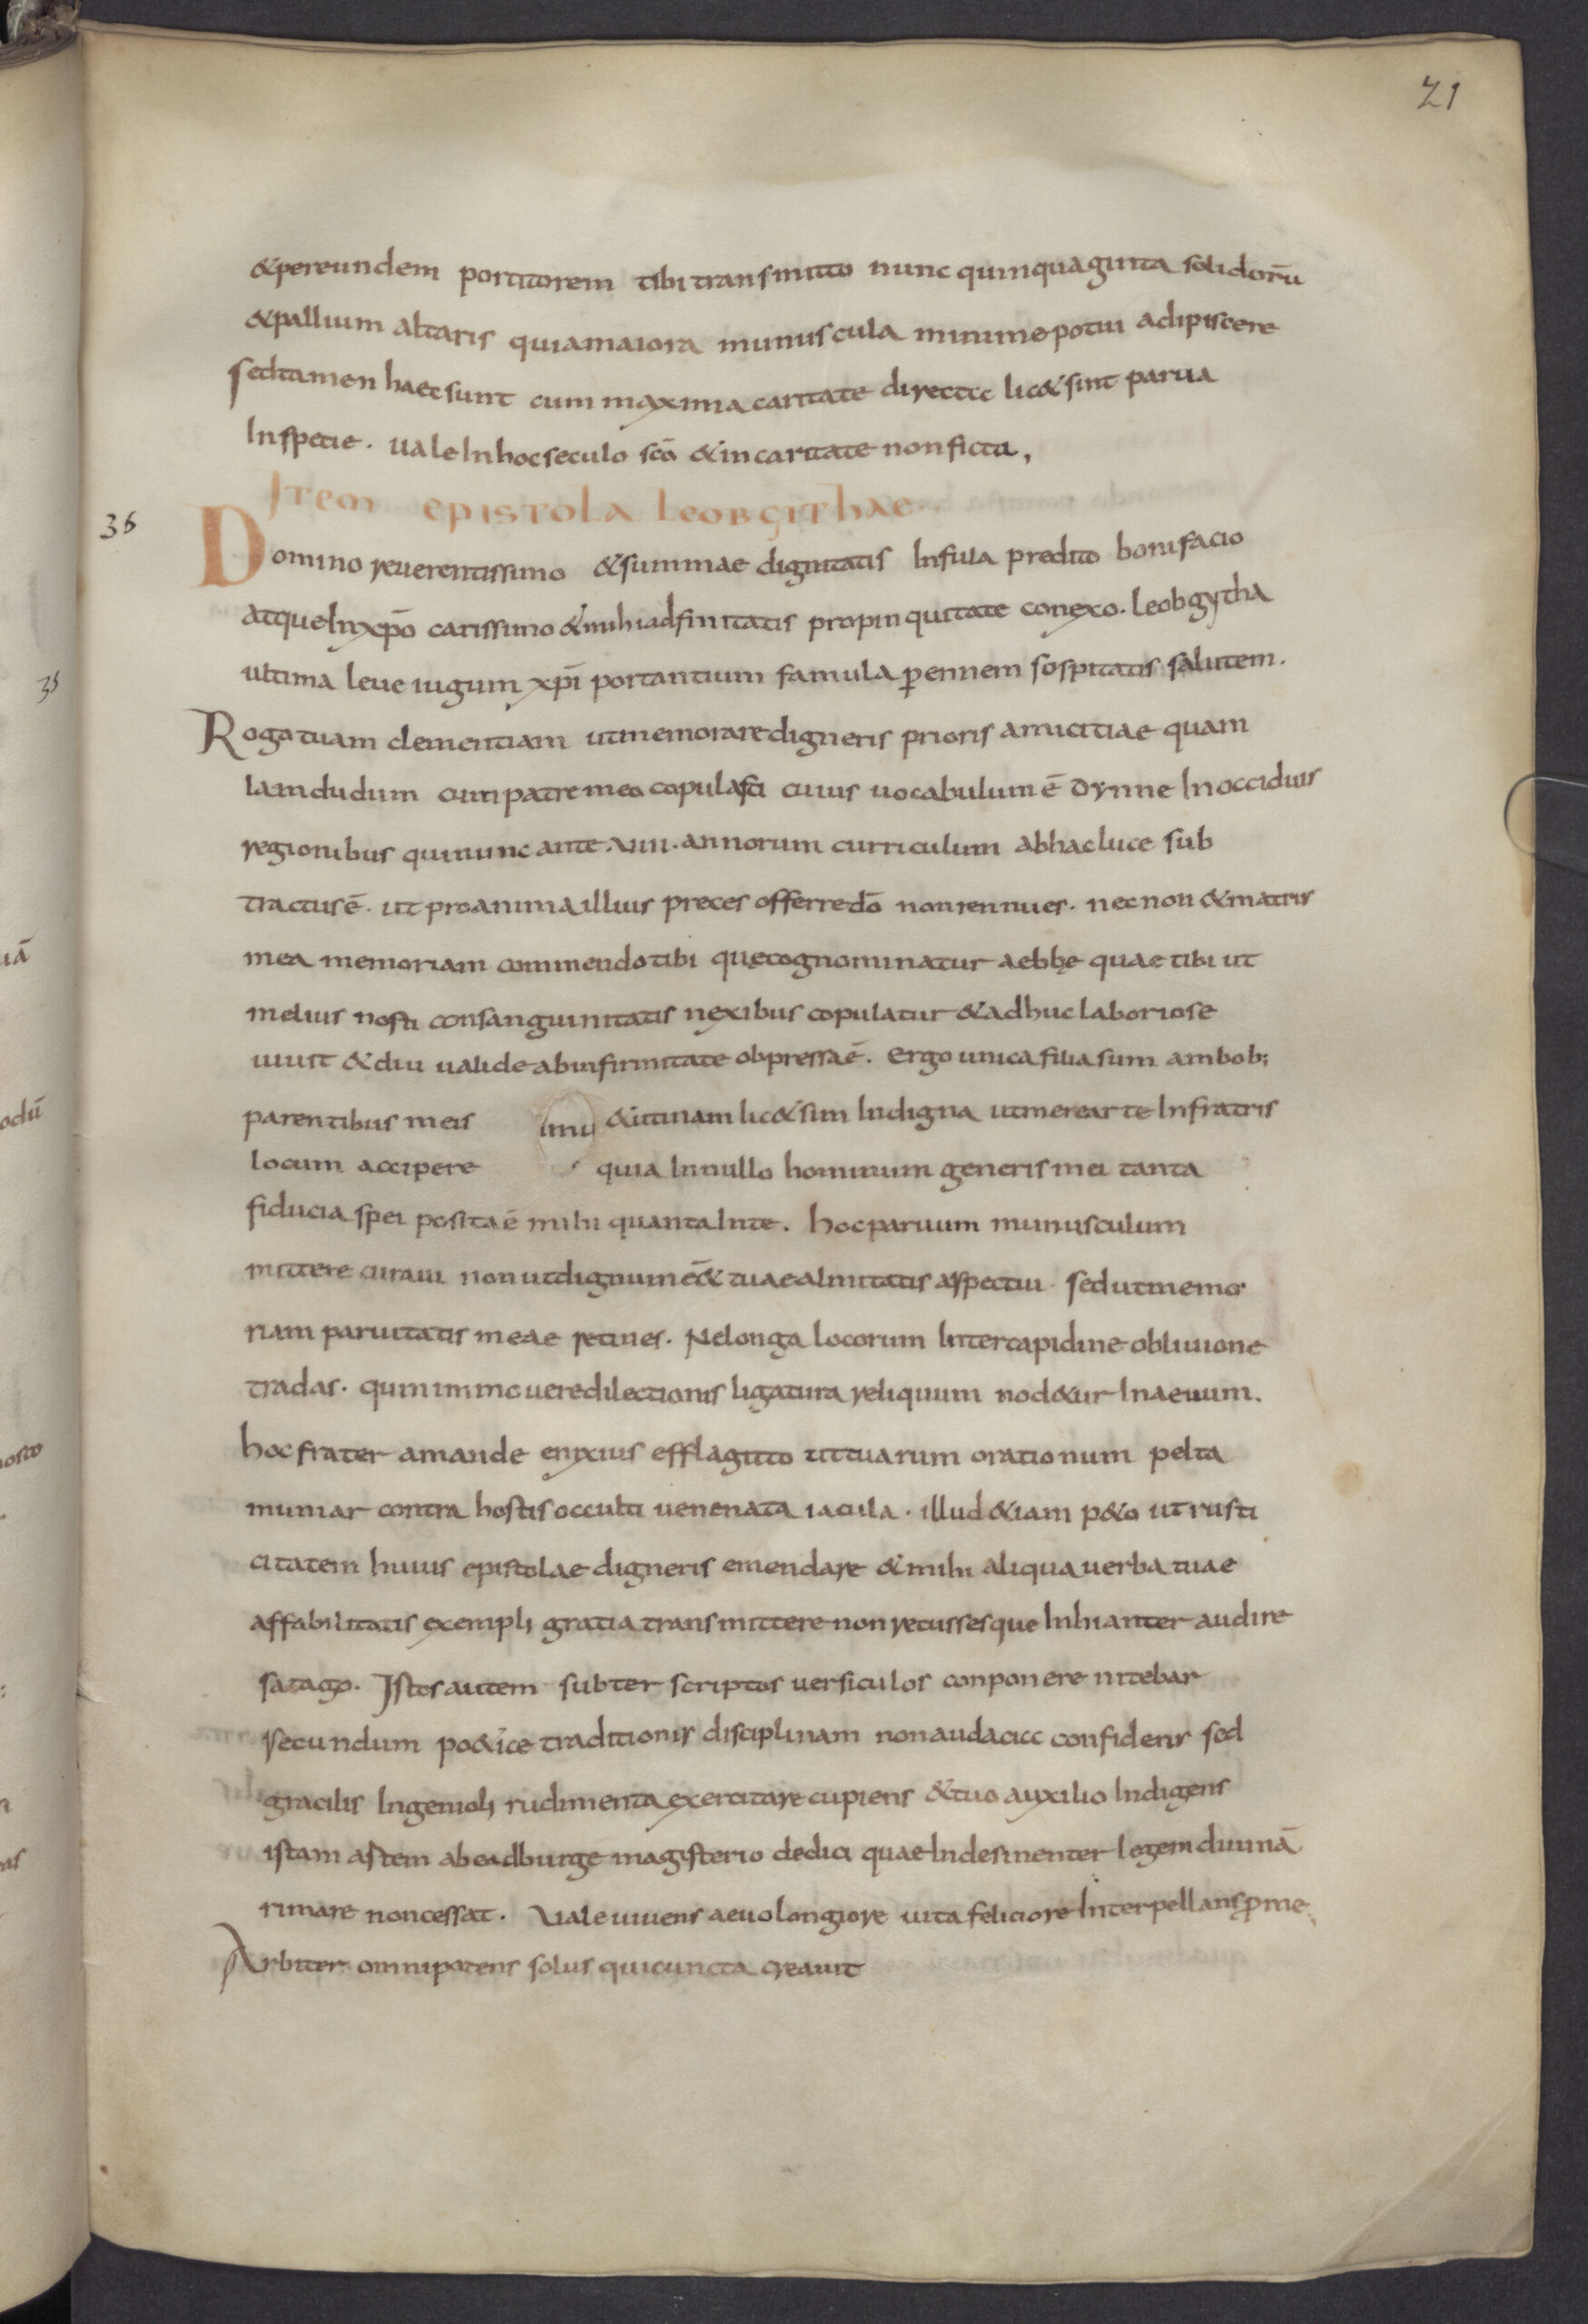 21
&pereundem portitorem tibi transmitto nunc quinquaginta solidorū
&pallium altaris quiamaiora munuscula minimepotui adipiscere
sedtamen haecsunt cum maxima caritate directe lic&sint parua
Inspecie. uale Inhocseculo scō &incaritate nonficta,
Item epistola leobgithae
36
Domino reuerentissimo &summae dignitatis Infula predito bonifacio
atqueInxpō carissimo &mihiadfinitatis propinquitate conexo. leobgytha
ultima leue iugum xpī portantium famula pennem sospitatis salutem.
Rogo tuam clementiam utmemorare digneris prioris amicitiae quam
Iamdudum cum patre meo copulasti cuius uocabulum ē dynne Inocciduis
regionibus quinunc ante .uiii. annorum curriculum abhacluce sub
tractus ē. ut pro anima illius preces offerre dō nonrennues. necnon &matris
mea memoriam commendo tibi quęcognominatur aebbę quae tibi ut
melius nosti consanguinitatis nexibus copulatur &adhuc laboriose
uiuit &diu ualide abinfirmitate obpressa ē. ergo unica filia sum ambob;
parentibus meis &utinam lic&sim Indigna utmerear te Infratris
locum accipere quia Innullo hominum generis mei tanta
fiducia spei posita ē mihi quanta Inte. hoc paruum munusculum
mittere curaui non utdignum ē& tuae almitatis aspectui sed utmemo
riam paruitatis meae retines. Nelonga locorum Intercapidine obliuione
tradas. quin immo uere dilectionis ligatura reliquum nod&ur Inaeuum.
hoc frater amande enixius efflagito ut tuarum orationum pelta
muniar contra hostis occulti uenenata iacula. illud &iam p&o ut rusti
citatem huius epistolae digneris emendare &mihi aliqua uerba tuae
affabilitatis exempli gratia transmittere non recusses que Inhianter audire
satago. Istos autem subter scriptos uersiculos conponere nitebar
secundum po&ice traditionis disciplinam nonaudacicc confidens sed
gracilis Ingenioli rudimenta exercitare cupiens &tuo auxilio Indigens
istam astem ab eadburge magisterio dedici quae Indesinenter legem diuinā
rimare noncessat. Uale uiuens aeuo longiore uita feliciore Interpellans p me.
Arbiter omnipotens solus quicuncta creauit
35